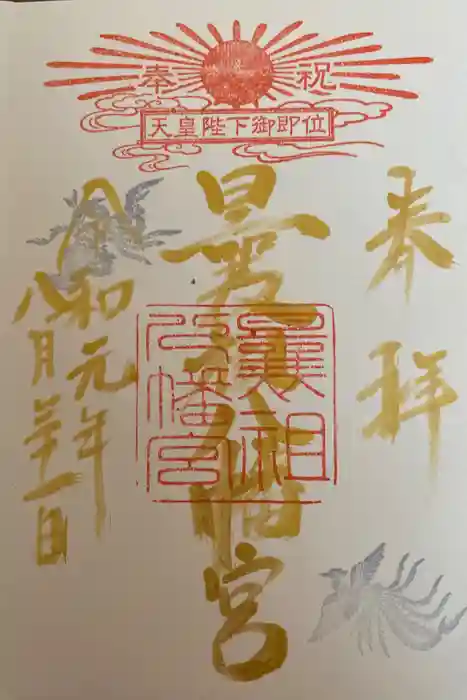 奉祝
天皇陛下御即位
奉拝
曩祖八幡宮
曩祖
八幡宮
令和元年
八月三十一日